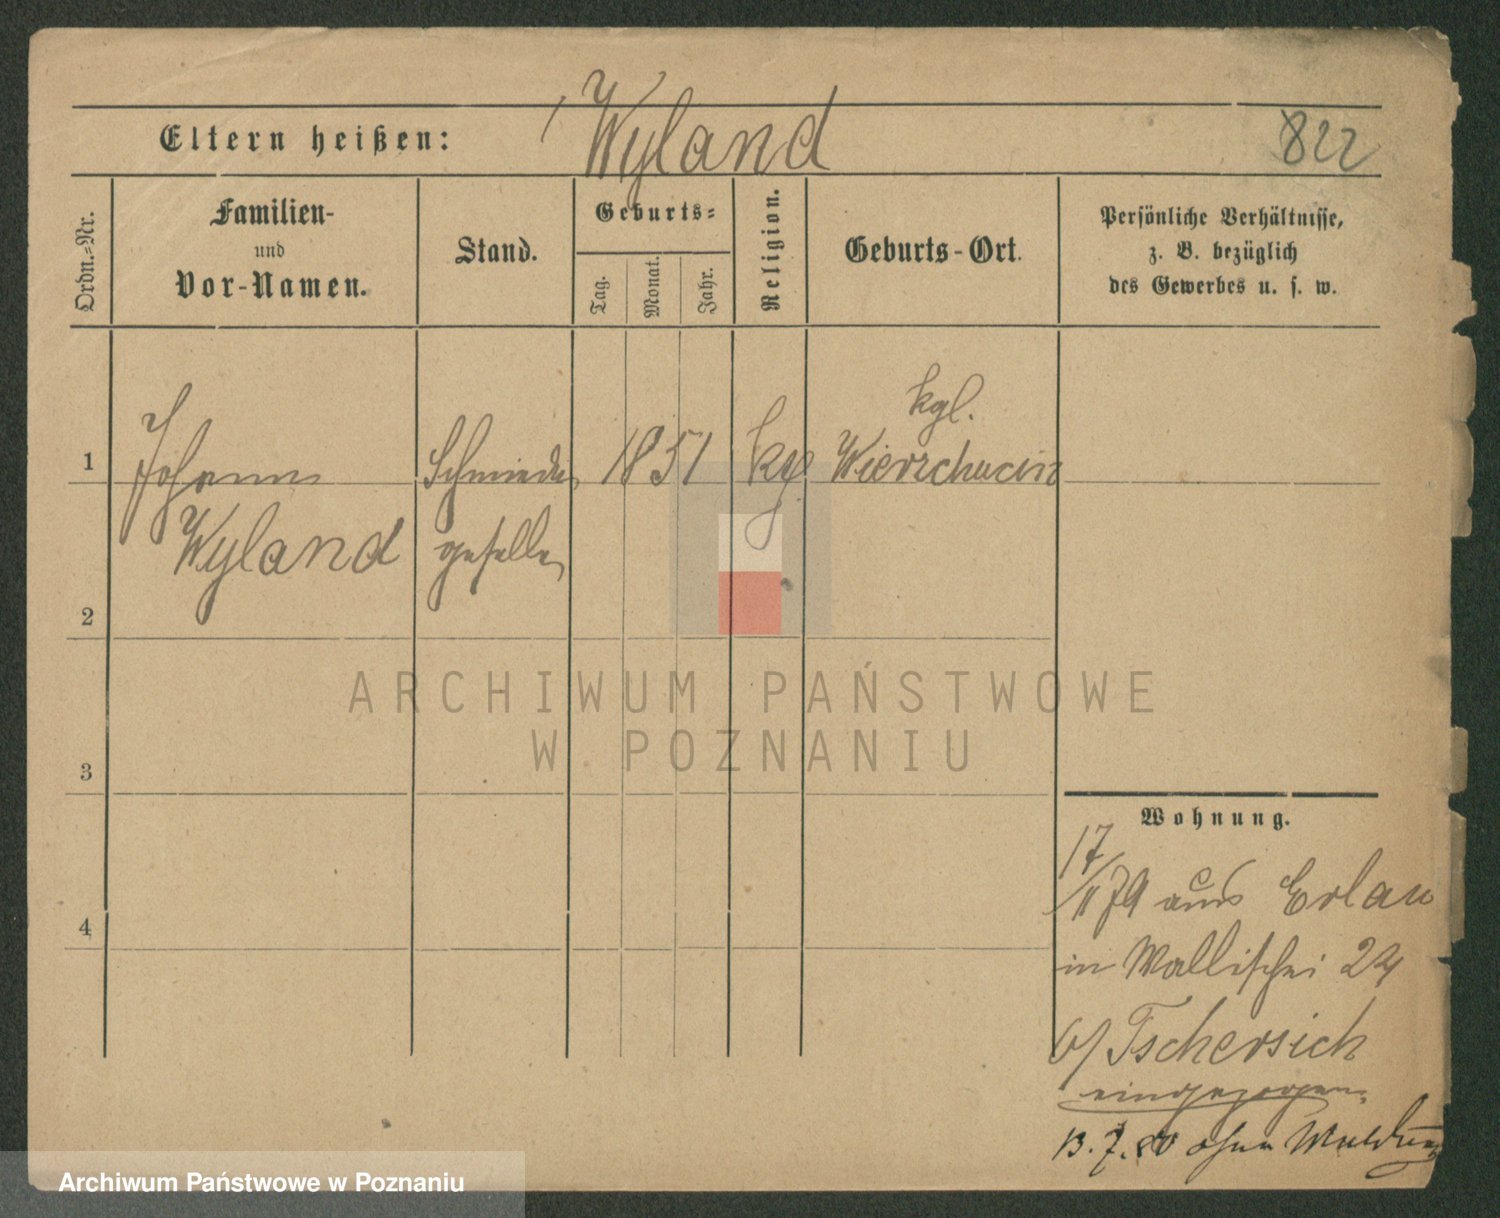 Eltern heißen: Wyland 822
Ordn.-Nr.
Familien-
und
Vor-Namen.
Stand.
Geburts-
Tag.
Monat.
Jahr.
Religion.
Geburts-Ort.
Persönliche Verhältnisse,
z. B. bezüglich
des Gewerbes u. s. w.
kgl.
1 Johann Schmiede 1851 Wierzchucin
Wyland geselle
2
3
4
ARCHIWUM PAŃSTWOWE
W POZNANIU
Wohnung.
17/11 79 aus Erlau
in Wallischei 24
b/ Tschersich
eingezogen.
13. 7. 80 ohne Meldung
Archiwum Państwowe w Poznaniu